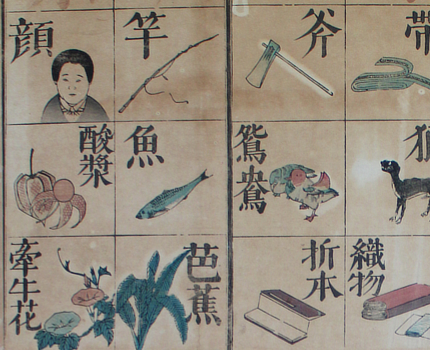 帶
斧
竿
顔
鴛鴦
魚
酸漿
織物
折本
芭蕉
牽牛花